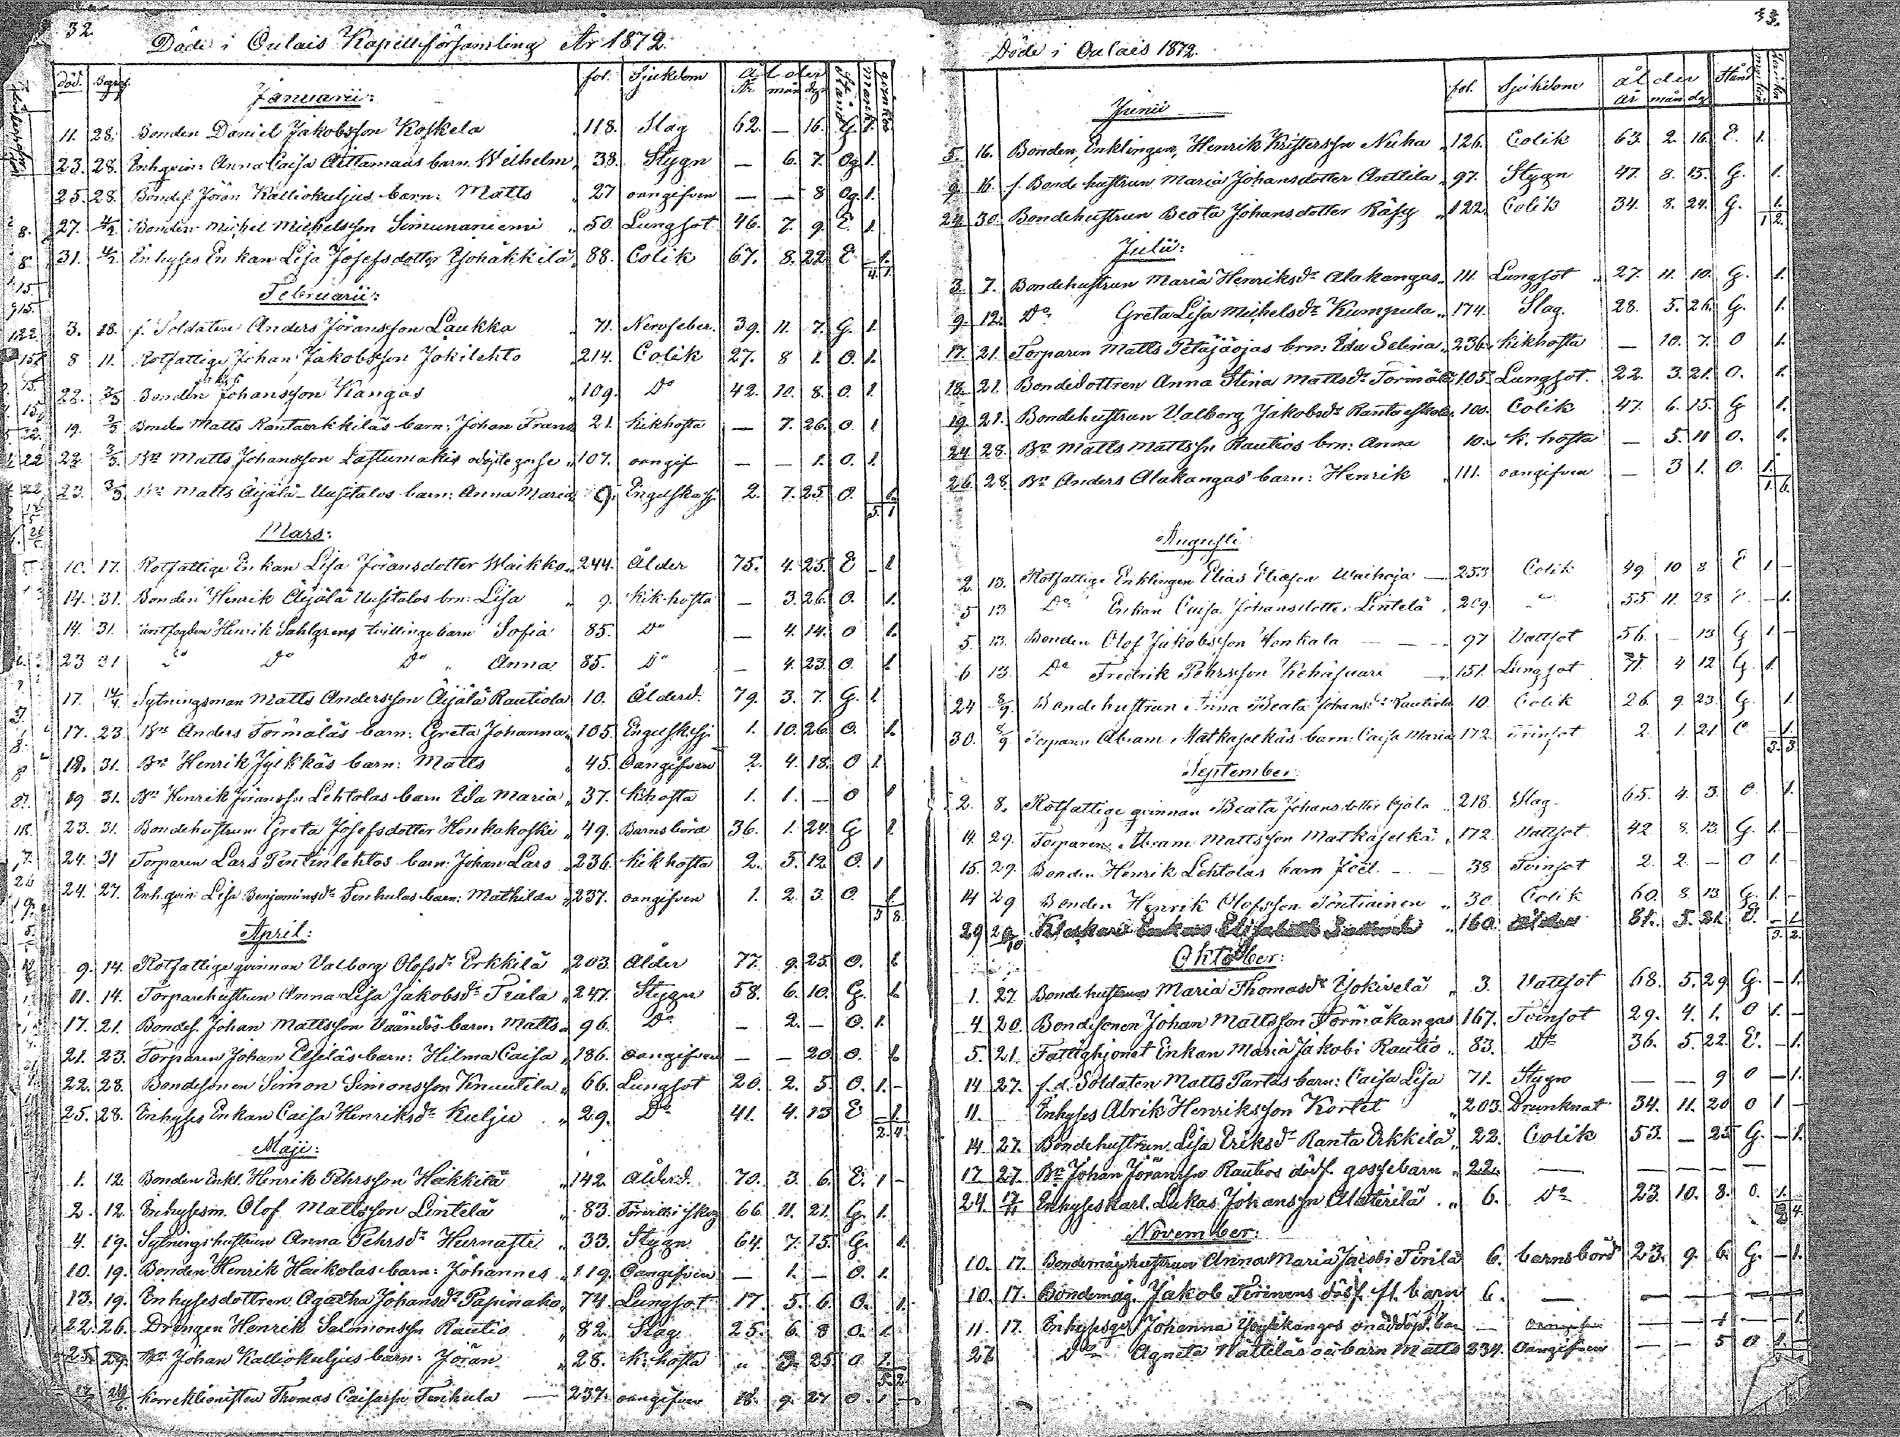 32.
Döde i Oulais Kapellförsamling År 1872.
död. Begrf. fol. Sjukdom ålder År mån dgr Stånd
Januarii:
11. 28. Bonden Daniel Jakobsson Koskela 118. Slag 62. — 16. G. 1.
23. 28. Enhqvin: Anna Caisa Aittamaas barn Wilhelm 38. Stygn — 6. 7. Og 1.
25. 28. Bondes. Jöran Kalliokuljus barn: Matts 27 oangifven — — 8 Og. 1.
27. 4/2 Bonden Michel Michelsson Simunaniemi 50. Lungsot 46. 7. 9. E. 1.
31. 4/2 Enhyses Enkan Lisa Josefsdotter Yohäkkilä 88. Colik 67. 8. 22 E 1.
4. 1.
Februarii:
3. 18. f. Soldaten Anders Jöransson Laukka 71. Nervfeber. 39. 11. 7. G. 1.
8 11. Rotfattige Johan Jakobsson Jokilehto 214. Colik 27. 8 1. O. 1.
22. 3/3 Bonden Johansson Kangas 109. Do 42. 10. 8. O. 1.
19. 3/3 Bonden Matts Rantaerkkiläs barn: Johan Frans 21. Kikhosta — 7. 26. O. 1
22 3/3 Bn Matts Johansson Lastumäkis odöpte gosse 107. oangif — — 1. O. 1.
23. 3/3 Bn Matts Äijälä-Uusitalos barn: Anna Maria 9. Engelska sj. 2. 7. 25. O. 1.
5. 1
Mars:
10. 17. Rotfattige Enkan Lisa Jöransdotter Waikko 244. Ålder 75. 4. 25. E — 1
14. 31. Bonden Henrik Äijälä Uusitalos brn: Lisa 9. Kikhosta — 3. 26. O. 1.
14. 31. Henrik Sahlgrens tvillingebarn Sofia 85. Do — 4. 14. O 1.
23 31 Do Do Do Anna 85. Do — 4. 23 O. 1
17. 14/4 Sytningsman Matts Andersson Äijälä Rautiola 10. Ålderd. 79. 3. 7. G. 1
17. 23. Bn Anders Törmäläs barn: Greta Johanna 105. Engelska sj. 1. 10. 26 O. 1.
18. 31. Bn Henrik Jylkkäs barn: Matts 45. Oangifven 2. 4. 18. O 1.
19 31. Bn Henrik Jöransson Lehtolas barn Ida Maria 37. Kikhosta 1. 1. — O 1.
23. 31. Bondehustrun Greta Josefsdotter Honkakoski 49. Barnsbörd 36. 1. 24. G 1.
24. 31 Torparen Lars Penttinlehtos barn: Johan Lars 236. Kikhosta 2. 5. 12. O. 1
24. 27. Enh.qvin Lisa Benjaminsdr Tenhulas barn: Mathilda 237. oangifven 1. 2. 3. O 1.
3 8.
April:
9. 14. Rotfattige qvinnan Valborg Olofsdr Erkkilä 203. Ålder 77. 9. 25. O. 1.
11. 14. Torparehustrun Anna Lisa Jakobsdr Tiala 247. Stygn 58. 6. 10. G. 1.
17. 21. Bondes. Johan Mattsson Väändös barn: Matts 96. Do — 2. — O. 1.
21. 23. Torparen Johan Elseläs barn: Hilma Caisa 186. oangifven — — 20 O. 1.
22. 28. Bondesonen Simon Simonsson Knuutila 66. Lungsot 20. 2. 5. O. 1. –
25. 28. Enhyses Enkan Caisa Henriksdr Kuljus 29. Do 41. 4. 13 E 1
2. 4.
Maji:
1. 12 Bonden Enkl. Henrik Pehrsson Häkkilä 142. Ålderd. 70. 3. 6. E. 1 –
2. 12. Enhysesm. Olof Mattsson Lintelä 83. 66 11. 21. G. 1.
4. 19. Sytningshustrun Anna Pehrsdr Hurnasti 33. Stygn 64. 7. 15. G. 1.
10. 19. Bonden Henrik Haikolas barn: Johannes 119. Oangifven — 1. — O. 1.
13. 19. Enhysesdottren Agatha Johansdr Papinaho 74 Lungsot 17. 5. 6. O. 1.
22. 26. Drängen Henrik Salomonsson Rautio 82. Slag 25. 6. 8 O. 1.
25. 29. Bn Johan Kalliokuljus barn: Jöran 28. K. hosta " 3. 25 O 1.
5. 2.
Korrektionisten Thomas Caisasson Tenhula — 237. oangifven 18. 9. 27 O. 1
33.
Döde i Oulais 1872.
fol. Sjukdom ålder år mån dg Stånd
Junii
5. 16. Bonden, Enklingen, Henrik Kristersson Nuha 126. Colik 63. 2. 16. E. 1.
9. 16. f. Bondehustrun Maria Johansdotter Anttila 97. Stygn 47. 8. 15. G. 1.
24. 30. Bondehustrun Beata Johansdotter Räisy 122. Colik 34. 8. 24. G. 1.
1 2.
Julii:
3. 7. Bondehustrun Maria Henriksdr Alakangas 111. Lungsot 27. 11. 10. G. 1.
9. 12. Do Greta Lisa Michelsdr Kumpula 174. Slag. 28. 5. 26. G. 1.
17. 21. Torparen Matts Petäjäojas brn: Ida Selina 236. Kikhosta — 10. 7. O 1.
18. 21. Bondedottren Anna Stina Mattsdr Törmälä 105. Lungsot. 22. 3. 21. O. 1.
19. 21. Bondehustrun Valborg Jakobsdr Rantaeskola 100. Colik 47. 6. 15. G 1.
24 28. Bn Matts Mattsson Rautios brn: Anna 10. K. hosta — 5. 11 O. 1.
26. 28. Bn Anders Alakangas barn: Henrik 111. oangifven — 3 1. O. 1.
1. 6.
Augusti
2. 13. Rotfattige Enklingen Elias Eliasson Waihoja — 253 Colik 49 10 8 E 1 –
5 13 Do Enkan Caisa Johansdotter Lintelä 209. 55 11. 28 E. – 1.
5. 13. Bonden Olof Jakobsson Honkala — — 97 Vattsot 56. — 13 G 1 –
6 13. Do Fredrik Pehrsson Kehäsuari 151. Lungsot 71. 4 12 G. 1.
24 8/9. Bondehustrun Anna Beata Johansdr Rautiola 10. Colik 26 9 23 G. 1.
30. 8/9 Torparen Abram Matkaselkäs barn: Caisa Maria 172. Tvinsot 2 1. 21 O – 1.
3. 3.
September:
2. 8. Rotfattige qvinnan Beata Johansdotter Äjälä 218. Slag. 65. 4. 3. O. 1.
14. 29. Torparen Abram Mattsson Matkaselkä 172. Vattsot. 42 8. 13. G. 1. –
15. 29. Bonden Henrik Lehtolas barn Joel. 38 Tvinsot 2. 2. — O 1. –
14 29 Bonden Henrik Olofsson Töntiainen 30. Colik 60. 8 13 G. 1. –
29 20/10 Enkan Elisabeth 160. Ålder 81. 5. 21. E. – 1.
3. 2.
Oktober:
1. 27. Bondehustrun Maria Thomasdr Yokivelä 3. Vattsot 68. 5. 29 G. – 1.
4. 20. Bondesonen Johan Mattsson Törmäkangas 167. Tvinsot 29. 4. 1. O 1. –
5. 21. Fattighjonet Enkan Maria Jakobi Rautio 83. Do 36. 5. 22. E. – 1.
14 27. f.d. Soldaten Matts Partas barn: Caisa Lisa 71. Stygn — — 9 O – 1.
11. Enhyses Alrik Henriksson Kortet 203. Drunknat 34. 11. 20 O 1 –
14 27. Bondehustrun Lisa Eriksdr Ranta Erkkilä 22. Colik 53. — 25 G. – 1.
17 27. Bn Johan Jöransson Rautios dödf. gossebarn 22. — — — —
24. 17/11 Enhyseskarl. Lukas Johansson Alaterilä 6. Do 23. 10. 8. O. 1.
4.
November:
10. 17. Bondemågshustrun Anna Maria Jacobi Tirilä 6. barnsbörd 23. 9. 6. G. – 1.
10. 17. Bondemåg. Jakob Tirinens dödf. fl. barn 6. — — — —
11 17. Enhysesq. Johanna Ypyäkangas onäddöpt. barn — — — 1 — 1.
27. Do Agneta Wättiläs oä. barn Matts 234. Oangifven — — 5 O 1.